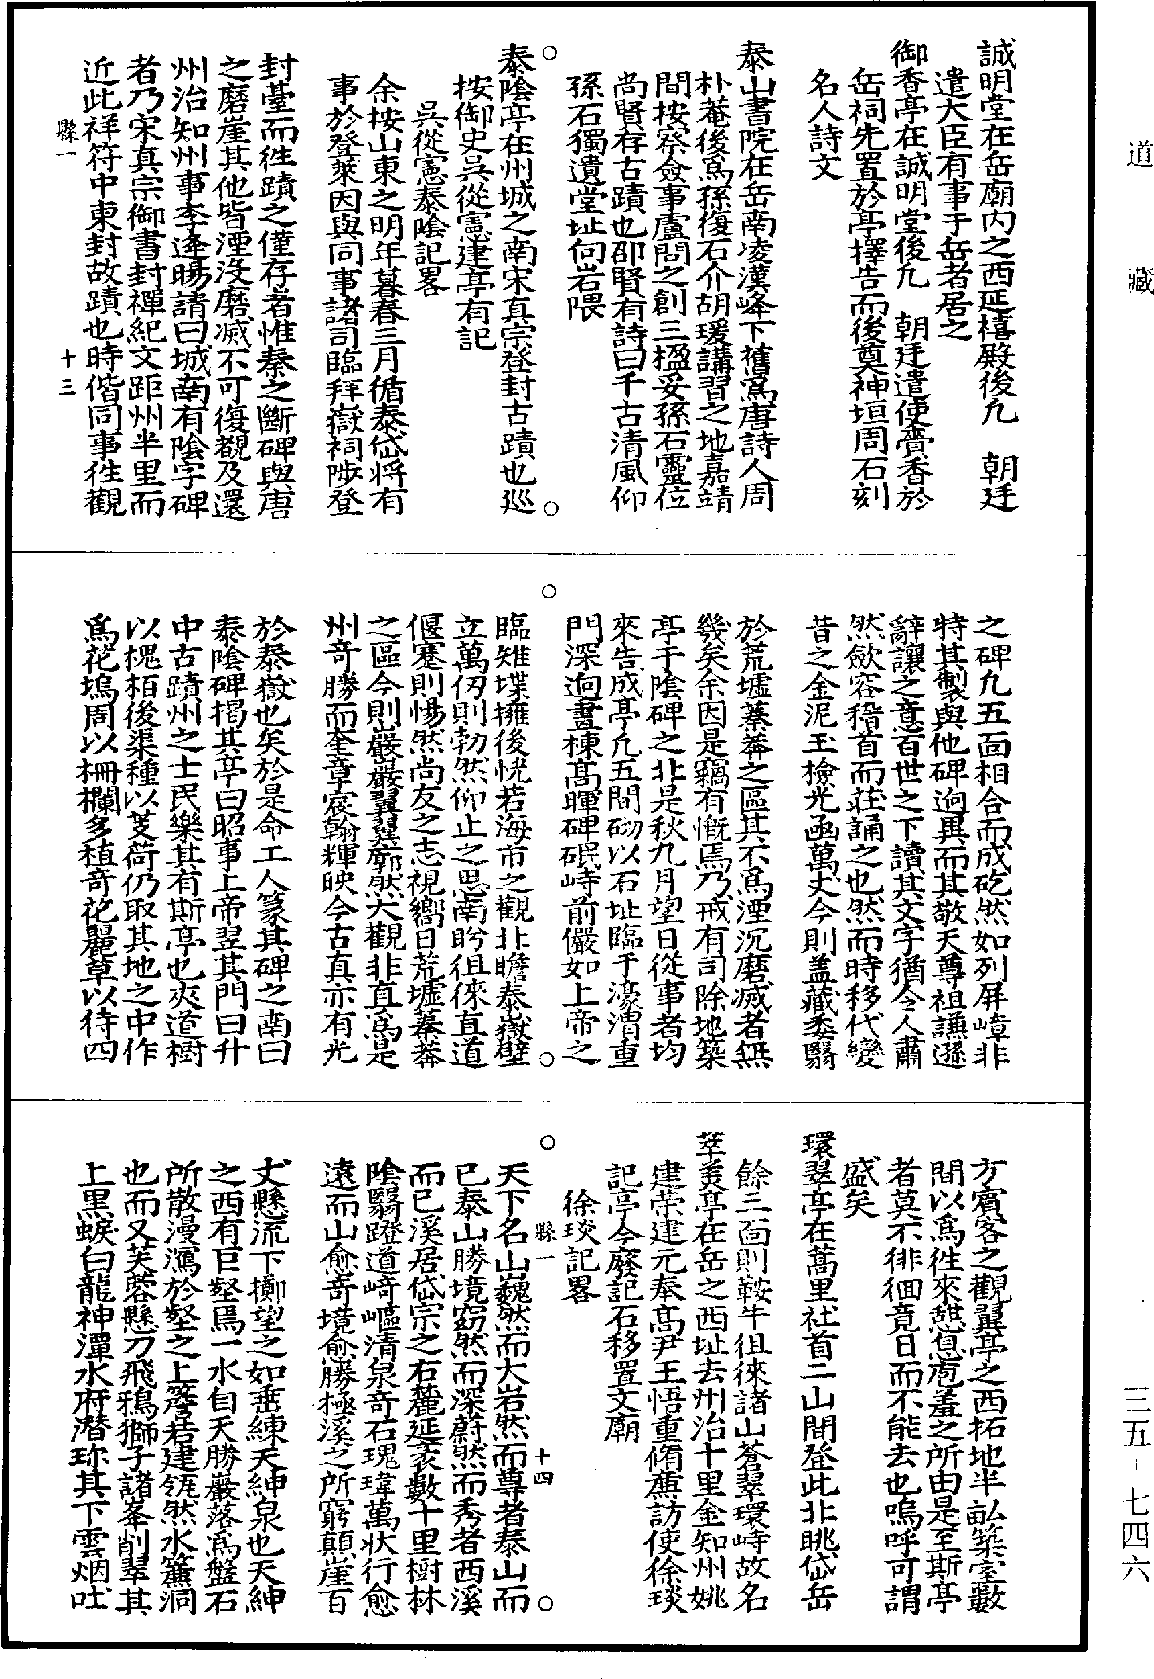 道藏
誠明堂在岳廟內之西延禧殿後凡　朝廷
遣大臣有事于岳者居之
御香亭在誠明堂後凡　朝廷遣使賫香於
岳祠先置於亭擇告而後奠神垣周石刻
名人詩文
泰山書院在岳南凌漢峰下舊爲唐詩人周
朴菴後爲孫復石介胡瑗講習之地嘉靖
間按察僉事盧問之創三楹妥孫石靈位
尚賢存古蹟也邵賢有詩曰千古清風仰
孫石獨遺堂址向岩隈
泰陰亭在州城之南宋真宗登封古蹟也巡
按御史吳從憲建亭有記
吳從憲泰陰記畧
余按山東之明年暮春三月循泰岱將有
事於登萊因與同事諸司臨拜嶽祠陟登
封臺而徃蹟之僅存者惟秦之斷碑與唐
之磨崖其他皆湮沒磨滅不可復覩及還
州治知州事李逢暘請曰城南有陰字碑
者乃宋真宗御書封禪紀文距州半里而
近此祥符中東封故蹟也時偕同事徃觀
縣一
十三
之碑九五面相合而成矻然如列屏嶂非
特其製與他碑迥異而其敬天尊祖謙遜
辭讓之意百世之下讀其文字猶令人肅
然歛容稽首而莊誦之也然而時移代變
昔之金泥玉檢光函萬丈今則蓋藏委翳
於荒墟蓁莽之區其不爲湮沉磨滅者無
幾矣余因是竊有慨焉乃戒有司除地築
亭于陰碑之北是秋九月望日從事者均
來告成亭凡五間砌以石址臨于濠湑重
門深迥畫棟高暉碑珉峙前儼如上帝之
臨雉堞擁後恍若海市之觀北瞻泰嶽壁
立萬仞則勃然仰止之思南盻徂徠直道
偃蹇則惕然尚友之志視嚮日荒墟蓁莽
之區今則巖巖翼翼廓然大觀非直爲是
州奇勝而奎章宸翰輝映今古真亦有光
於泰嶽也矣於是命工人篆其碑之南曰
泰陰碑揭其亭曰昭事上帝翌其門曰升
中古蹟州之士民樂其有斯亭也夾道樹
以槐栢後渠種以芰荷仍取其地之中作
爲花塢周以柵欄多植奇花麗草以待四
方賓客之觀翼亭之西拓地半畝築室數
間以爲徃來憇息庖羞之所由是至斯亭
者莫不徘徊竟日而不能去也嗚呼可謂
盛矣
環翠亭在蒿里社首二山間登此北眺岱岳
餘三面則鞍牛徂徠諸山蒼翠環峙故名
萃美亭在岳之西址去州治十里金知州姚
建榮建元奉高尹王悟重脩廉訪使徐琰
記亭今廢記石移置文廟
徐琰記畧
縣一
十四
天下名山巍然而大岩然而尊者泰山而
已泰山勝境窈然而深蔚然而秀者西溪
而已溪居岱宗之右麓延袤數十里樹林
陰翳蹬道﨑嶇清泉奇石瑰瑋萬狀行愈
遠而山愈奇境愈勝極溪之所窮顛崖百
丈懸流下擲望之如垂練天紳泉也天紳
之西有巨壑焉一水自天勝巖落爲盤石
所散漫瀉於壑之上簷若建瓴然水簾洞
也而又芙蓉懸刀飛鴉獅子諸峯削翠其
上黑蜧白龍神潭水府潜珎其下雲烟吐
三五-七四六